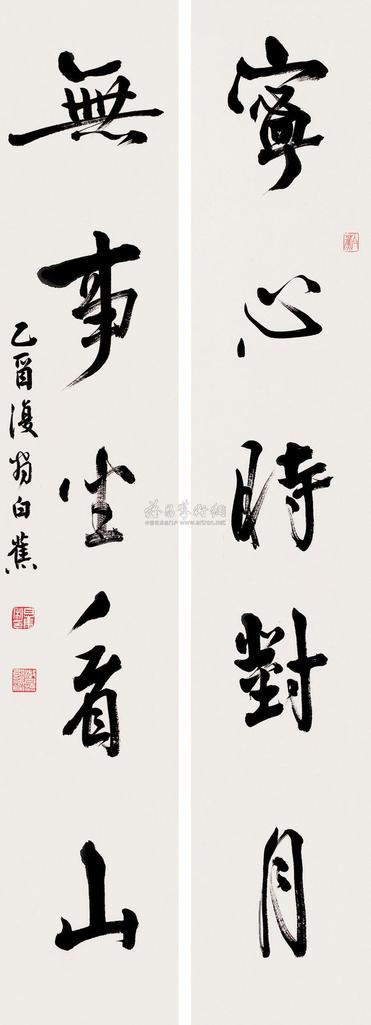 寧心時對月
無事坐看山
乙酉復翁白蕉
雅昌艺术網
www.artron.net